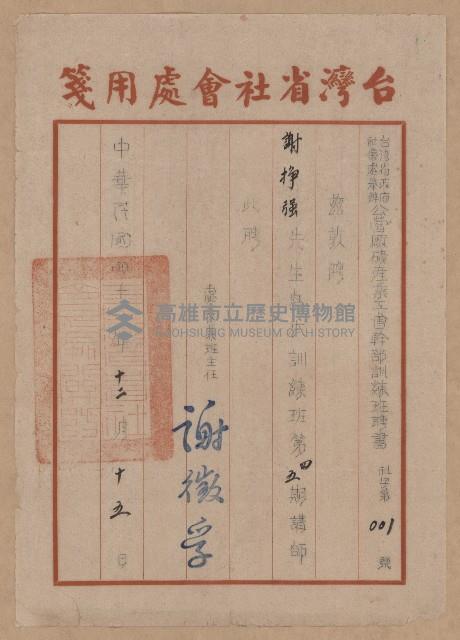 台灣省社會處用箋
台湾省政府
社會處舉辦
公營廠礦産業工會幹部訓練班聘書
社字第 001 號
茲敦聘
謝掙强先生為本訓練班第四五期講師
此聘
處長兼班主任
謝徵孚
中華民國
年十二月十五日
高雄市立歷史博物館
KAOHSIUNG MUSEUM OF HISTORY